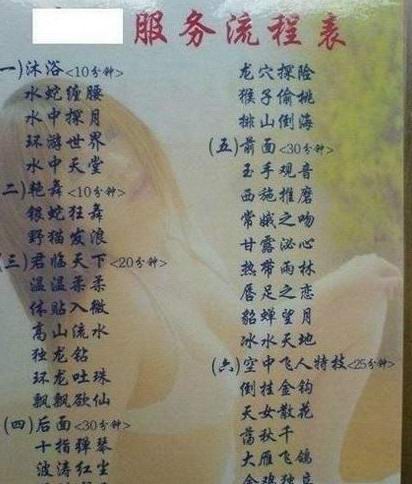 服务流程表
一)沐浴<10分钟>
水蛇缠腰
水中探月
环游世界
水中天堂
二)艳舞<10分钟>
银蛇狂舞
野猫发浪
(三)君临天下<20分钟>
温温柔柔
体贴入微
高山流水
独龙钻
环龙吐珠
飘飘欲仙
(四)后面<30分钟>
十指弹琴
波涛红尘
龙穴探险
猴子偷桃
排山倒海
(五)前面<30分钟>
玉手观音
西施推磨
常娥之吻
甘露泌心
热带雨林
唇足之恋
貂蝉望月
冰水天地
(六)空中飞人特技<25分钟>
倒挂金钩
天女散花
荡秋千
大雁飞鸽
金鸡独立